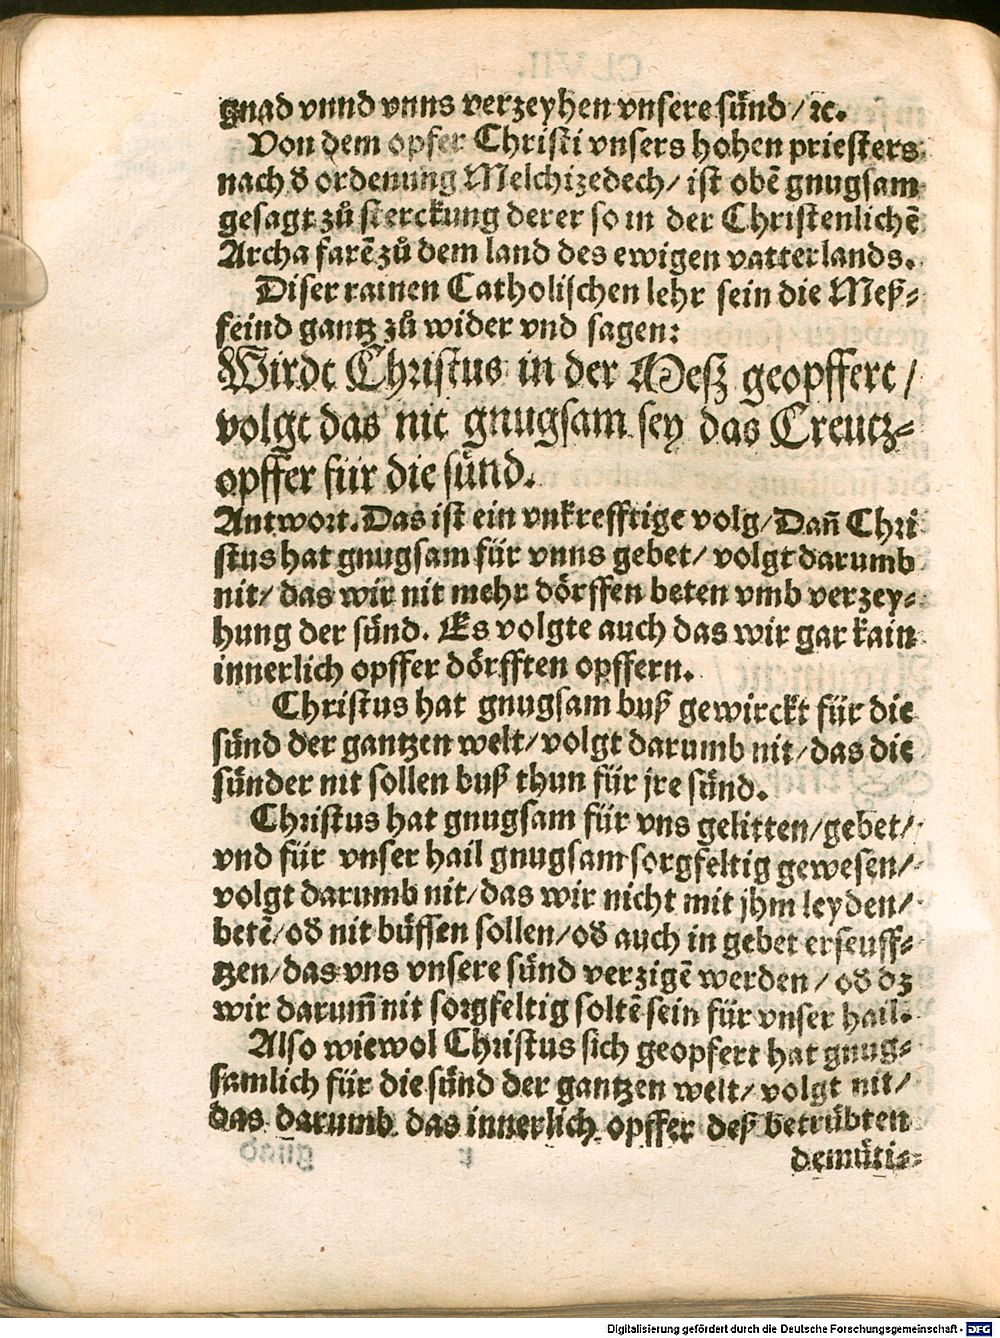 gnad vnnd vnns verzeyhen vnsere sünd / ꝛc.
Von dem opfer Christi vnsers hohen priesters
nach ð ordenung Melchizedech / ist obẽ gnugsam
gesagt zů sterckung derer so in der Christenlichẽ
Archa farẽ zů dem land des ewigen vatterlands.
Diser rainen Catholischen lehr sein die Meß-
feind gantz zů wider vnd sagen:
Wirdt Christus in der Mesz geopffert /
volgt das nit gnugsam sey das Creutz-
opffer für die sünd.
Antwort. Das ist ein vnkrefftige volg / Dañ Chri
stus hat gnugsam für vnns gebet / volgt darumb
nit / das wir nit mehr dörffen beten vmb verzey-
hung der sünd. Es volgte auch das wir gar kain
innerlich opffer dörfften opffern.
Christus hat gnugsam buß gewirckt für die
sünd der gantzen welt / volgt darumb nit / das die
sünder nit sollen buß thun für jre sünd.
Christus hat gnugsam für vns gelitten / gebet /
vnd für vnser hail gnugsam sorgfeltig gewesen /
volgt darumb nit / das wir nicht mit jhm leyden /
betẽ / oð nit büssen sollen / oð auch in gebet erseuff-
tzen / das vns vnsere sünd verzigẽ werden / oð dz
wir darum̃ nit sorgfeltig soltẽ sein für vnser hail.
Also wiewol Christus sich geopfert hat gnug-
samlich für die sünd der gantzen welt / volgt nit /
das darumb das innerlich opffer deß betrübten
demüti-
Digitalisierung gefördert durch die Deutsche Forschungsgemeinschaft - DFG